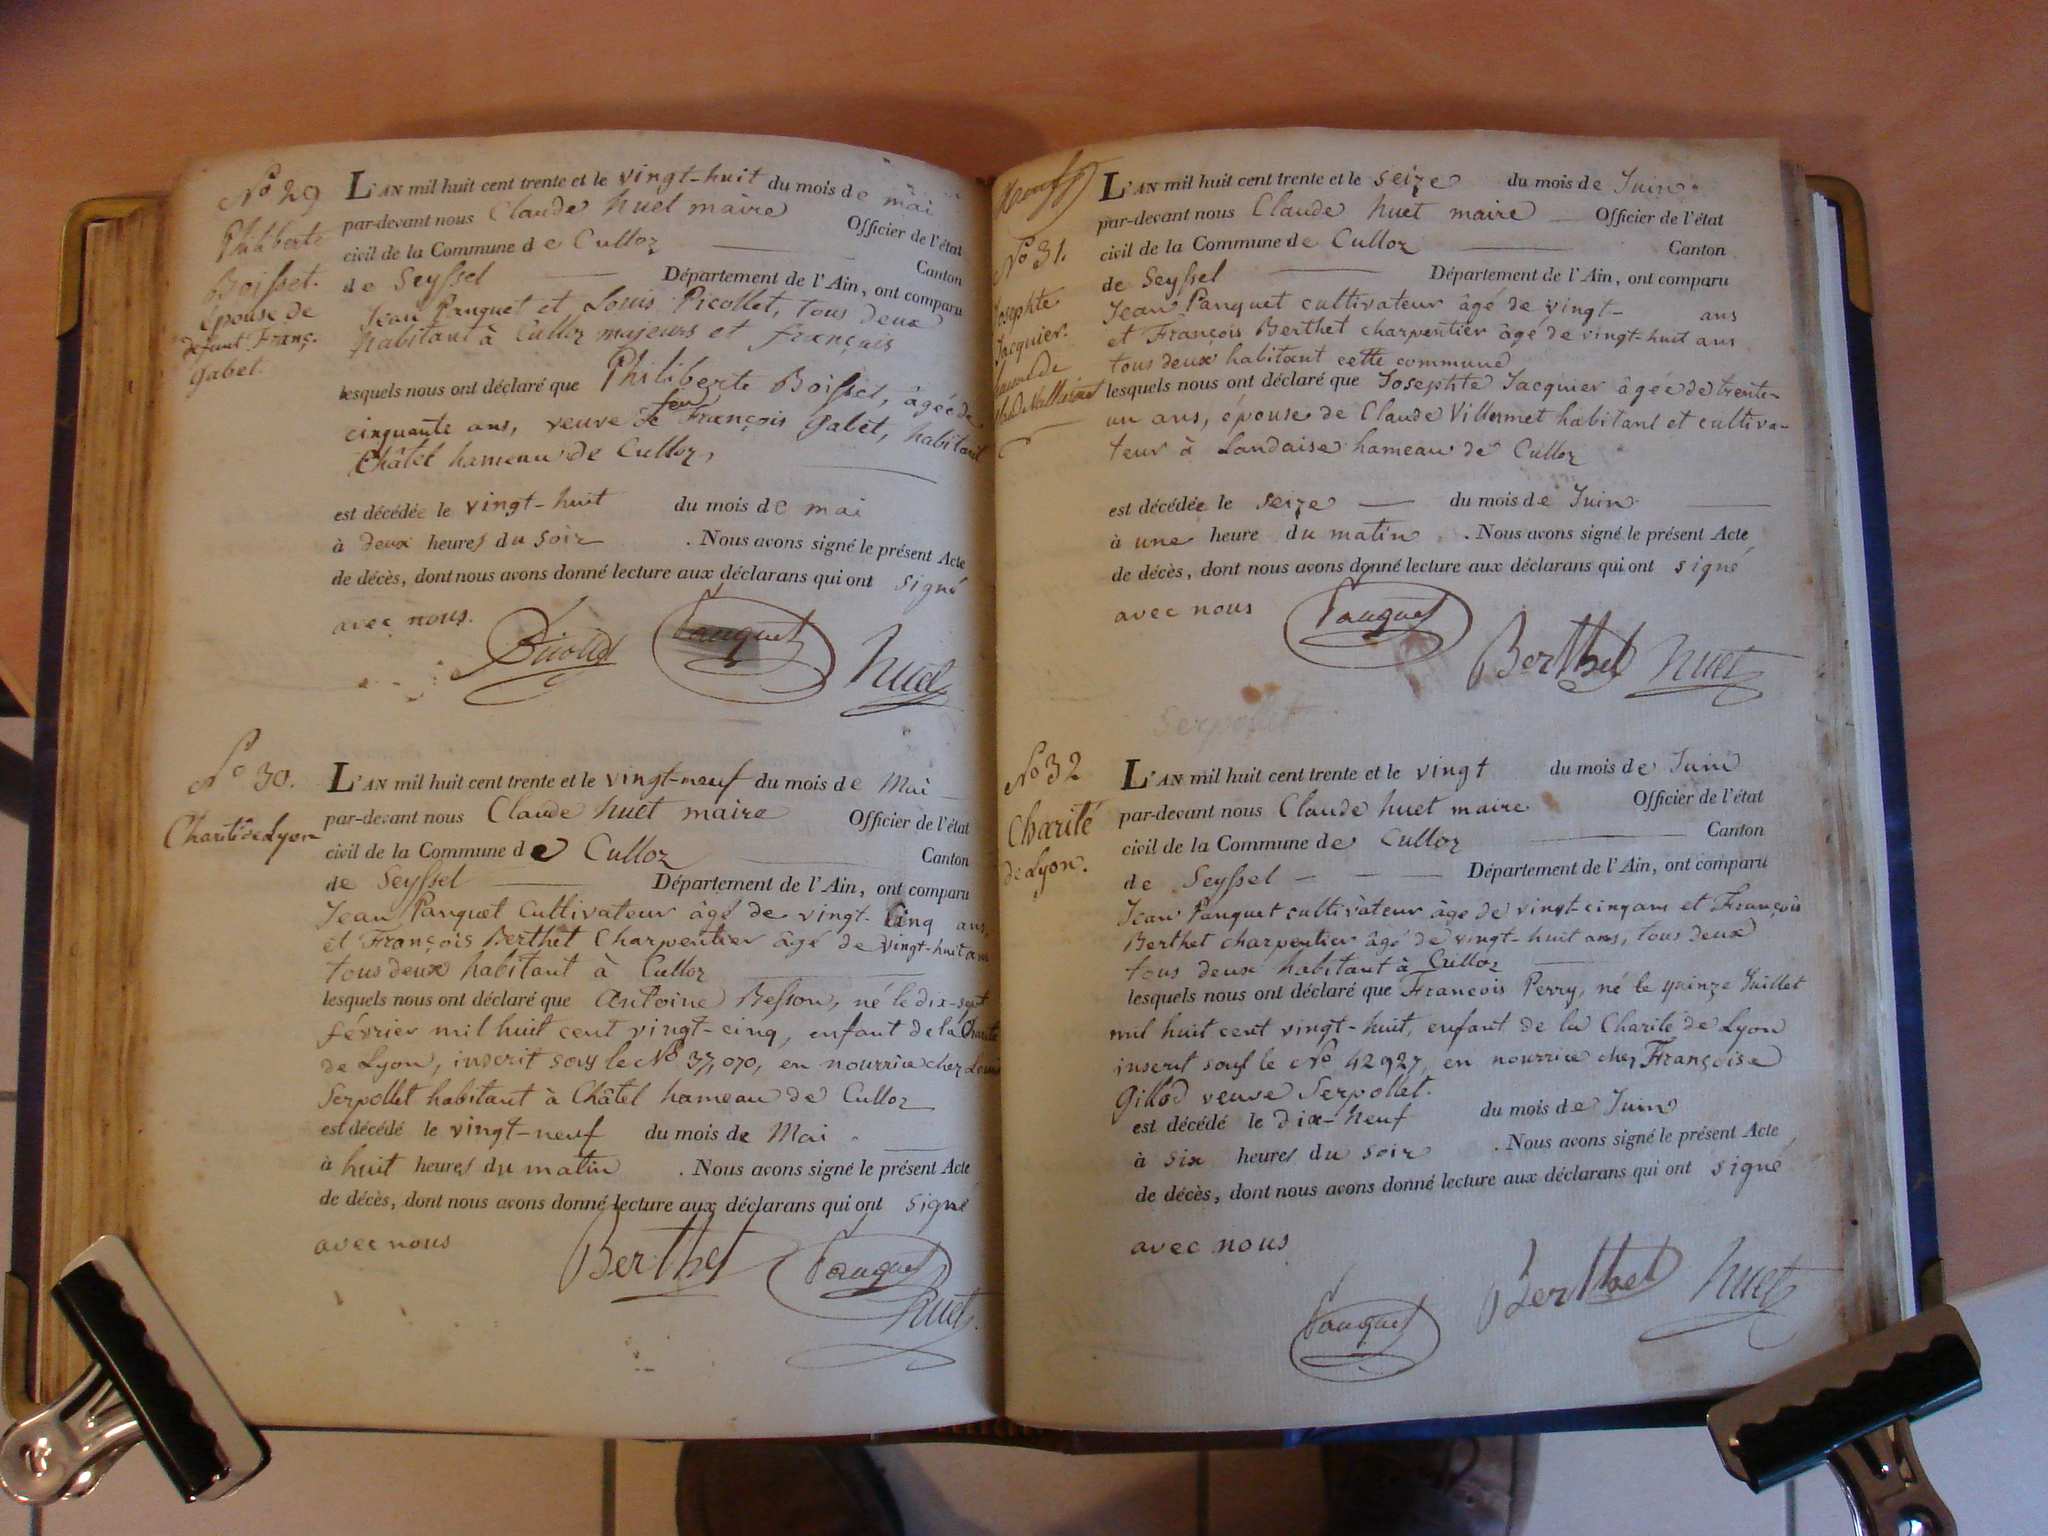 No 29
Philiberte
Boisset.
épouse de
défunt Franç.
gabet.
L'AN mil huit cent trente et le vingt-huit du mois de mai
par-devant nous Claude huet maire Officier de l'état
civil de la Commune de Culloz Canton
de Seyssel Département de l'Ain, ont comparu
Jean Panquet et Louis Picollet, tous deux
habitant à Culloz majeurs et français
lesquels nous ont déclaré que Philiberte Boisset, âgée de
cinquante ans, veuve de feu François gabet, habitant
Châtel hameau de Culloz,
est décédée le vingt-huit du mois de mai
à deux heures du soir . Nous avons signé le présent Acte
de décès, dont nous avons donné lecture aux déclarans qui ont signé
avec nous.
Panquet
huet
No 30.
Charité de Lyon
L'AN mil huit cent trente et le vingt-neuf du mois de Mai
par-devant nous Claude huet maire Officier de l'état
civil de la Commune de Culloz Canton
de Seyssel Département de l'Ain, ont comparu
Jean Panquet Cultivateur âgé de vingt-cinq ans,
et François Berthet Charpentier âgé de vingt-huit ans
tous deux habitant à Culloz
lesquels nous ont déclaré que Antoine Besson, né le dix-sept
février mil huit cent vingt-cinq, enfant de la Charité
de Lyon, inscrit sous le No 37,070, en nourrice chez Louis
Serpollet habitant à Châtel hameau de Culloz
est décédé le vingt-neuf du mois de Mai
à huit heures du matin . Nous avons signé le présent Acte
de décès, dont nous avons donné lecture aux déclarans qui ont signé
avec nous
Berthet Panquet
huet
No 31.
Josephte
Jacquier.
L'AN mil huit cent trente et le seize du mois de Juin
par-devant nous Claude huet maire Officier de l'état
civil de la Commune de Culloz Canton
de Seyssel Département de l'Ain, ont comparu
Jean Panquet cultivateur âgé de vingt- ans
et François Berthet charpentier âgé de vingt-huit ans
tous deux habitant cette commune
lesquels nous ont déclaré que Josephte Jacquier âgée de trente-
un ans, épouse de Claude Villermet habitant et cultiva-
teur à Landaise hameau de Culloz
est décédée le seize du mois de Juin
à une heure du matin . Nous avons signé le présent Acte
de décès, dont nous avons donné lecture aux déclarans qui ont signé
avec nous
Panquet
Berthet huet
Serpollet
No 32
Charité
de Lyon.
L'AN mil huit cent trente et le vingt du mois de Juin
par-devant nous Claude huet maire Officier de l'état
civil de la Commune de Culloz Canton
de Seyssel Département de l'Ain, ont comparu
Jean Panquet cultivateur âgé de vingt-cinq ans et François
Berthet charpentier âgé de vingt-huit ans, tous deux
tous deux habitant à Culloz
lesquels nous ont déclaré que François Perry, né le quinze Juillet
mil huit cent vingt-huit, enfant de la Charité de Lyon
inscrit sous le No 42927, en nourrice chez Françoise
Gillod veuve Serpollet.
est décédé le dix-neuf du mois de Juin
à six heures du soir . Nous avons signé le présent Acte
de décès, dont nous avons donné lecture aux déclarans qui ont signé
avec nous
Panquet Berthet huet